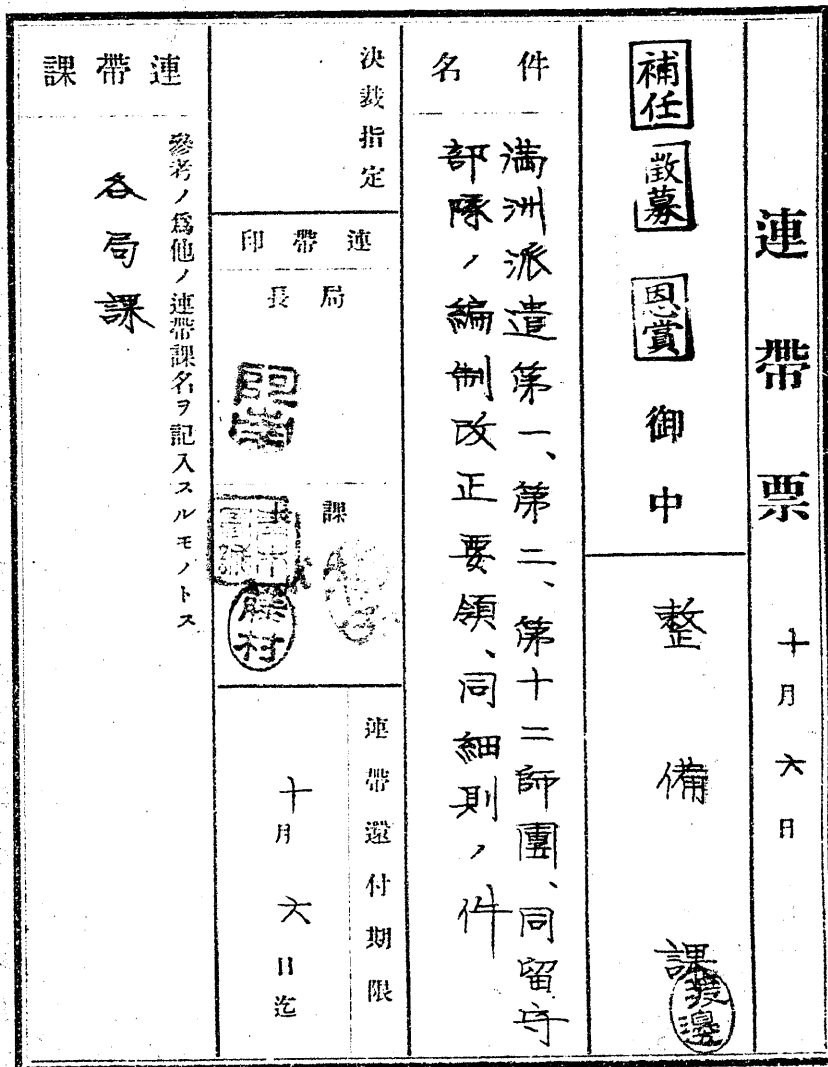 連帶票 十月六日
補任 徵募 恩賞 御中
整備課 渡邊
件名
満洲派遣第一、第二、第十二師團、同留守
部隊ノ編制改正要領、同細則ノ件
決裁指定
連帶印
局長
課長
藤村
連帶還付期限
十月六日迄
連帶課
參考ノ爲他ノ連帶課名ヲ記入スルモノトス
各局課